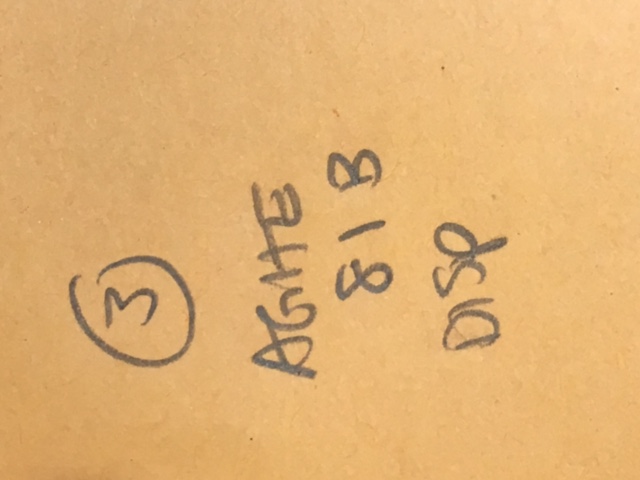 3
AGITE
81B
DISP